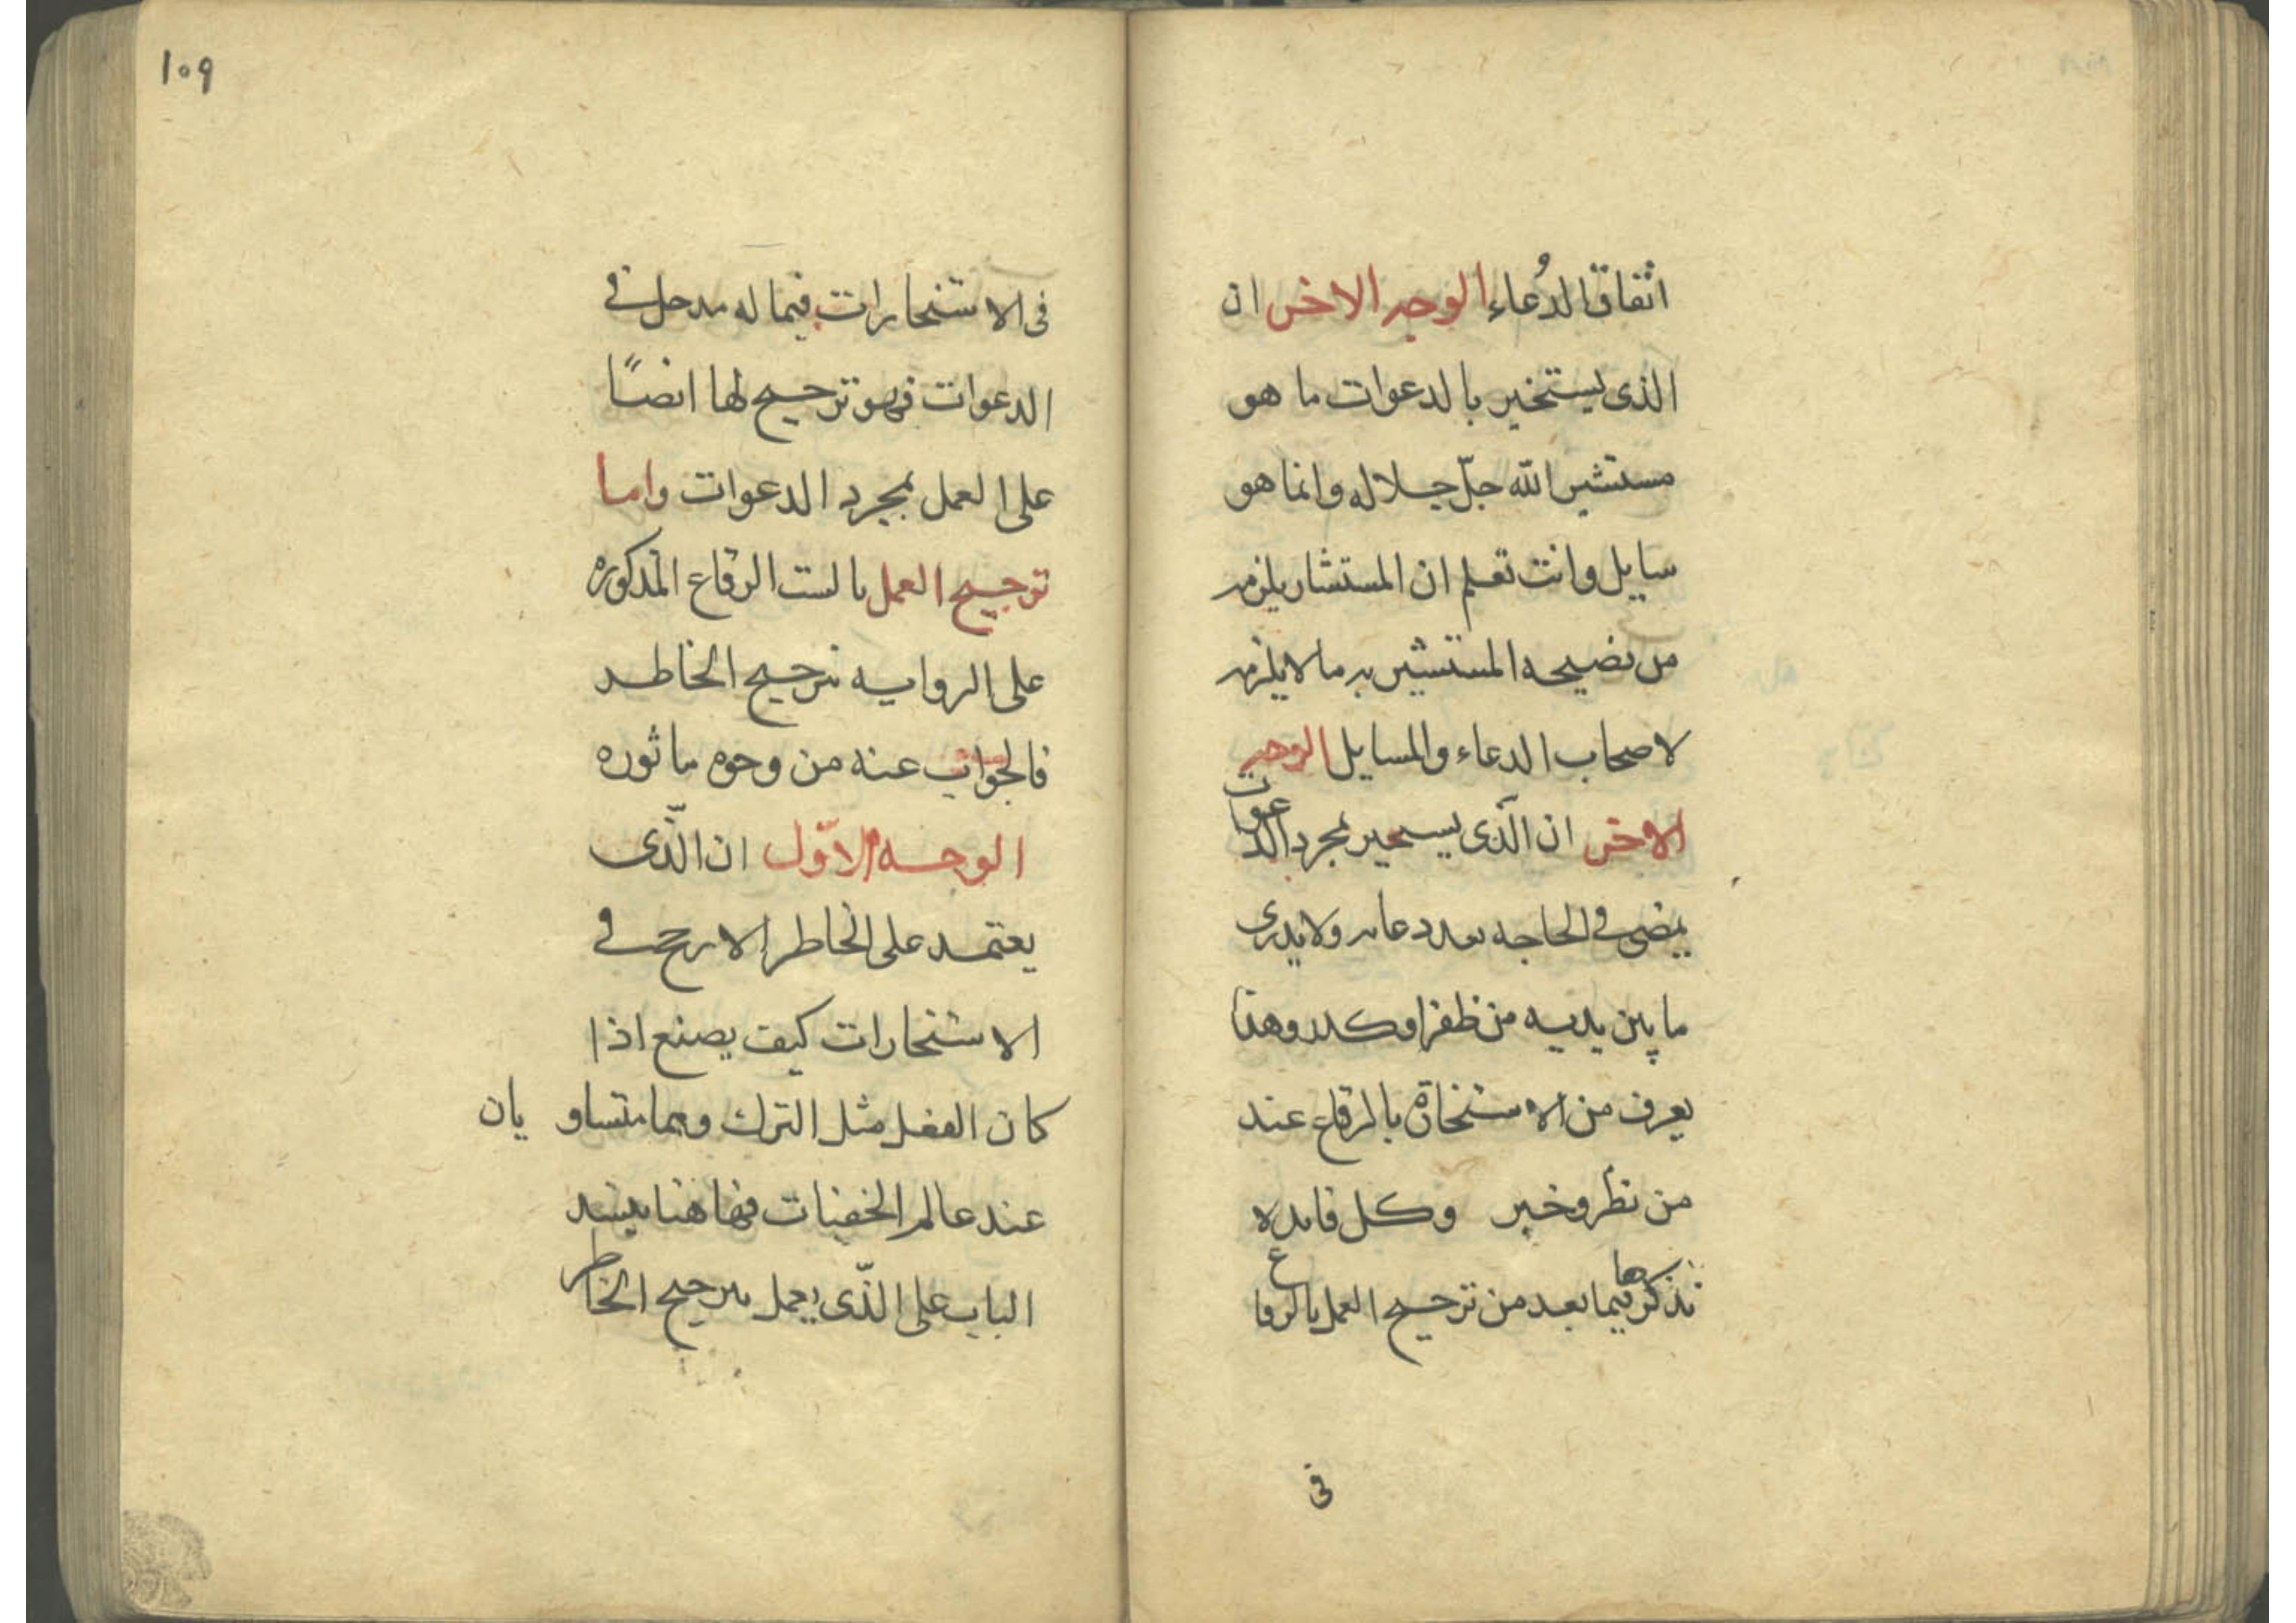 اتفاق الدُعاء الوجه الاخر ان
الذى يستخير بالدعوات ما هو
مستشير الله جلّ جلاله وانما هو
سايل وانت تعلم ان المستشار يلزمه
من نصيحه المستشير به ما لا يلزمه
لاصحاب الدعاء والمسايل الوجه
الاخر ان الّذى يستخير بمجرد الدعوات
يمضى فى الحاجه بعد دعايه ولا يدرى
ما بين يديه من ظفر او كدر وهذا
يعرف من الاستخارة بالرقاع عند
من نظر وخبر وكل فايده
نذكرها فيما بعد من ترجيح العمل بالرقاع
فى
109
فى الاستخارات فيما له مدخل فى
الدعوات فهو ترجيح لها ايضًا
على العمل بمجرد الدعوات واما
ترجيح العمل بالست الرقاع المذكوره
على الروايه بترجيح الخاطر
فالجواب عنه من وجوه ماثوره
الوجه الاوّل ان الّذى
يعتمد على الخاطر الارجح فى
الاستخارات كيف يصنع اذا
كان الفعل مثل الترك وهما متساو يان
عند عالم الخفيات فهاهنا ينسد
الباب على الذّى يعمل بترجيح الخاطر